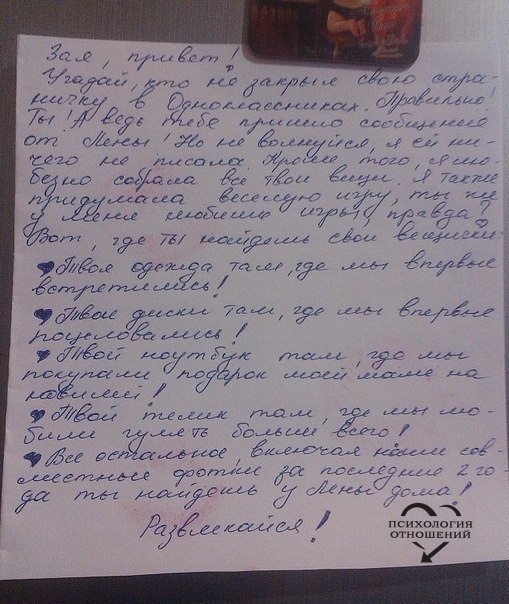 Зая, привет!
Угадай, кто не закрыл свою стра-
ничку в Одноклассниках. Правильно!
Ты! А ведь тебе пришло сообщение
от Лены! Но не волнуйся, я ей ни-
чего не писала. Кроме того, я лю-
безно собрала все твои вещи. Я также
придумала веселую игру, ты же
у меня любишь игры, правда?
Вот, где ты найдешь свои вещички:
♥ Твоя одежда там, где мы впервые
встретились!
♥ Твои диски там, где мы впервые
поцеловались!
♥ Твой ноутбук там, где мы
покупали подарок моей маме на
юбилей!
♥ Твой телик там, где мы лю-
били гулять больше всего!
♥ Все остальное, включая наши сов-
местные фотки за последние 2 го-
да ты найдешь у Лены дома!
Развлекайся!
ПСИХОЛОГИЯ
ОТНОШЕНИЙ